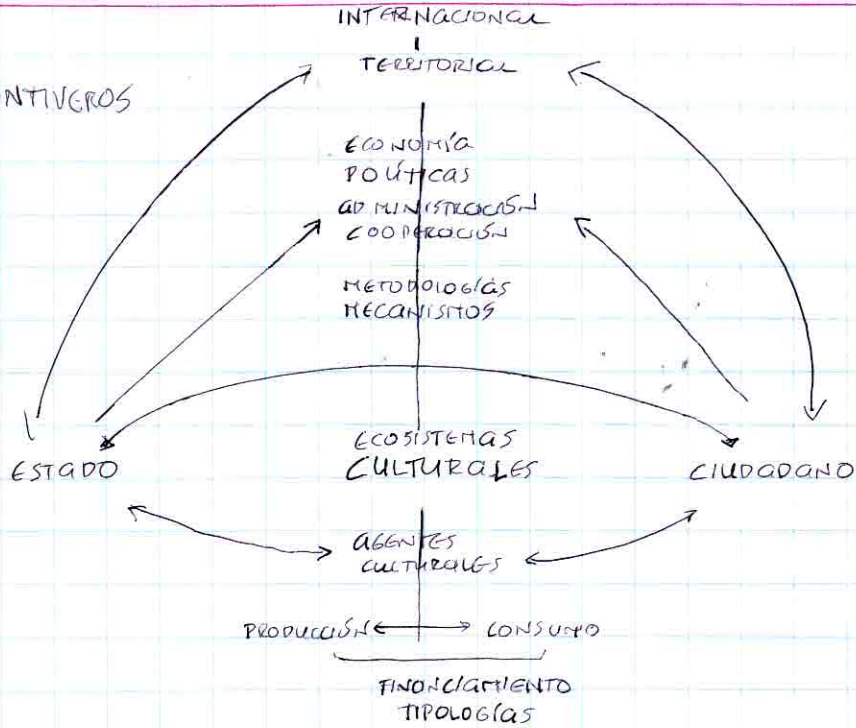 INTERNACIONAL
TERRITORIAL
ECONOMÍA
POLÍTICAS
ADMINISTRACIÓN
COOPERACIÓN
METODOLOGÍAS
MECANISMOS
ECOSISTEMAS
ESTADO CULTURALES CIUDADANO
AGENTES
CULTURALES
PRODUCCIÓN CONSUMO
FINANCIAMIENTO
TIPOLOGÍAS